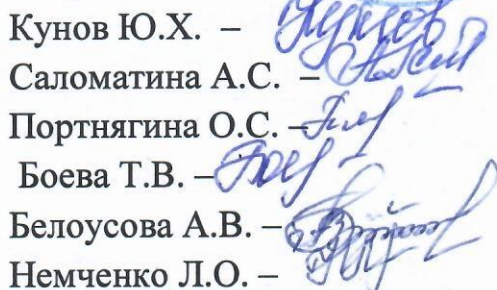 Кунов Ю.Х. –
Саломатина А.С. –
Портнягина О.С. –
Боева Т.В. –
Белоусова А.В. –
Немченко Л.О. –